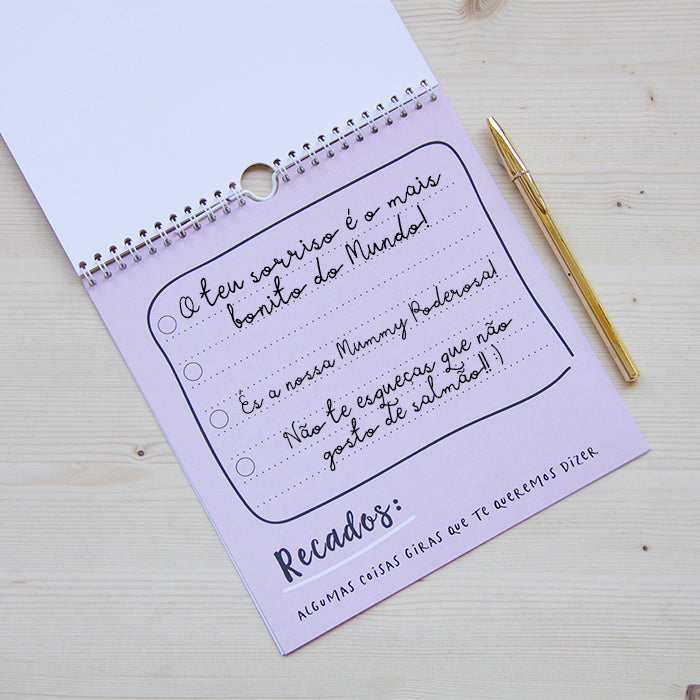 O teu sorriso é o mais
bonito do Mundo!
És a nossa Mummy Poderosa!
Não te esqueças que não
gosto de salmão!! :)
Recados:
ALGUMAS COISAS GIRAS QUE TE QUEREMOS DIZER